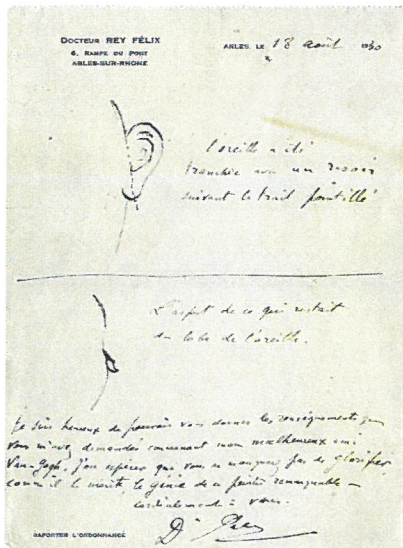 DOCTEUR REY FÉLIX
6, RAMPE DU PONT
ARLES-SUR-RHONE
ARLES, LE 18 août 1930
l'oreille a été
tranchée avec un rasoir
suivant le trait pointillé
L'aspect de ce qui restait
du lobe de l'oreille.
Je suis heureux de pouvoir vous donner les renseignements que
vous m'avez demandés concernant mon malheureux ami
Van-Gogh. J'ose espérer que vous ne manquerez pas de glorifier
comme il le mérite, le génie de ce peintre remarquable -
Cordialement à vous.
Dr Rey
RAPORTER L'ORDONNANCE